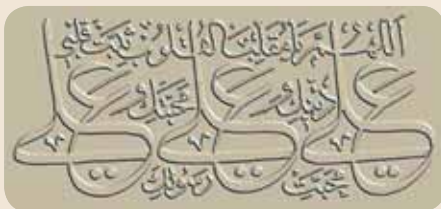 اللهم يا مقلب القلوب ثبت قلبي
على دينك على محبتك على
محبت رسولك